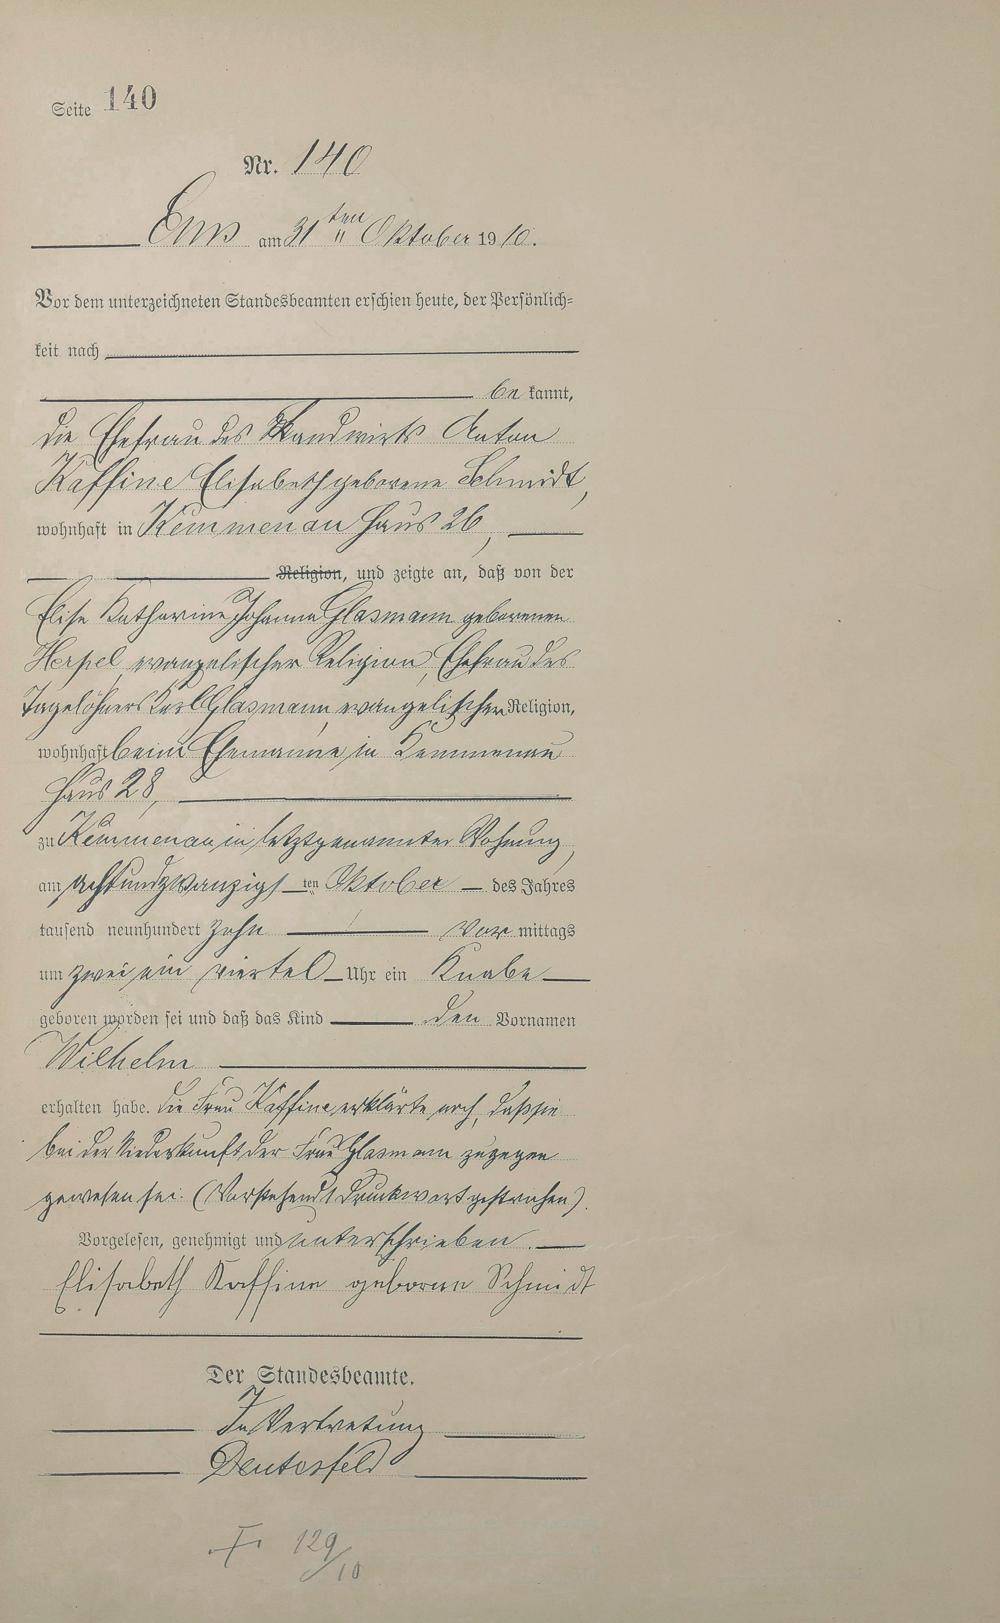 Seite 140
Nr. 140
Ems am 31ten Oktober 1910.
Vor dem unterzeichneten Standesbeamten erschien heute, der Persönlich-
keit nach
be kannt,
die Ehefrau des Landwirts Anton
Kaffine Elisabeth geborene Schmidt,
wohnhaft in Kemmenau Haus 26,
Religion, und zeigte an, daß von der
Elise Katharine Johanna Glasmann geborenen
Herpel, evangelischer Religion, Ehefrau des
Tagelöhners Karl Glasmann, evangelischer Religion,
wohnhaft beim Ehemanne in Kemmenau
Haus 28,
zu Kemmenau in letztgenannter Wohnung,
am achtundzwanzigs ten Oktober des Jahres
tausend neunhundert zehn Vor mittags
um zwei ein viertel Uhr ein Knabe
geboren worden sei und daß das Kind den Vornamen
Wilhelm
erhalten habe. Die Frau Kaffine erklärte noch, daß sie
bei der Niederkunft der Frau Glasmann zugegen
gewesen sei. (Vorstehend 1 Druckwort gestrichen).
Vorgelesen, genehmigt und unterschrieben.
Elisabeth Kaffine geborene Schmidt
Der Standesbeamte.
In Vertretung
129/10